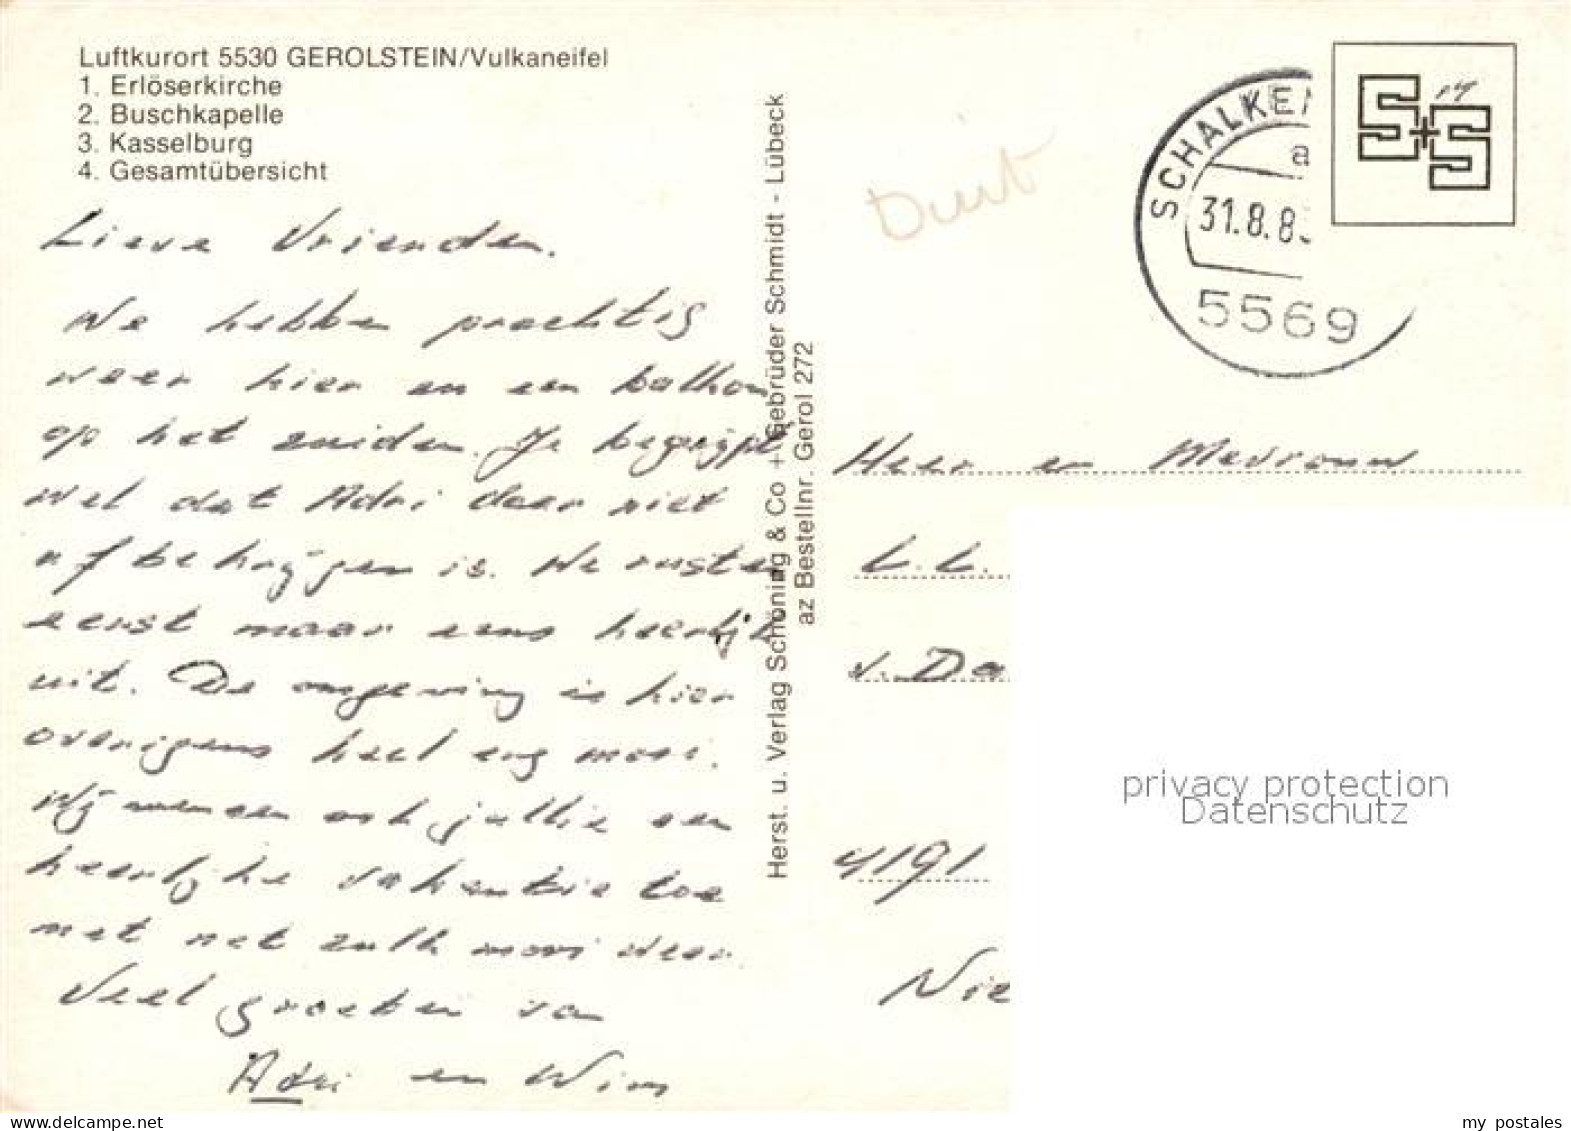 Luftkurort 5530 GEROLSTEIN/Vulkaneifel
1. Erlöserkirche
2. Buschkapelle
3. Kasselburg
4. Gesamtübersicht
Lieve Vrienden.
We hebben prachtig
weer hier en een balkon
op het zuiden. Je begrijpt
wel dat Adri daar niet
af te krijgen is. We rusten
eerst maar eens heerlijk
uit. De omgeving is hier
overigens heel erg mooi.
Wij wensen ook jullie een
heerlijke vakantie toe
met net zulk mooi weer.
Veel groeten van
Adri en Wim
Herst. u. Verlag Schöning & Co + Gebrüder Schmidt - Lübeck
az Bestellnr. Gerol 272
SCHALKEN
a
31.8.8
5569
S+S
Heer en Mevrouw
L.L.
v. Da
4191
Nie
privacy protection
Datenschutz
my postales
www.delcampe.net